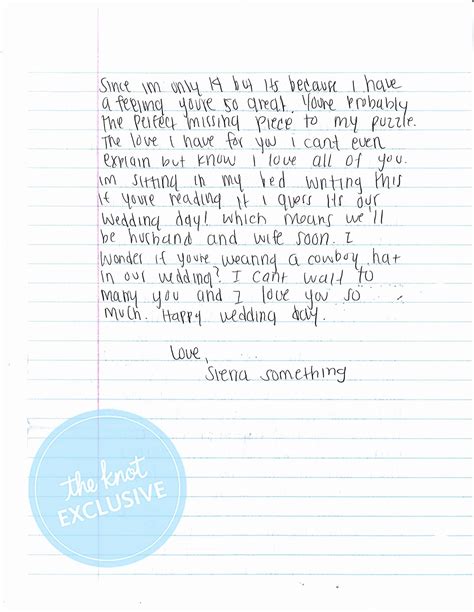 Since im only 14 but its because I have
a feeling youre so great. Youre probably
the perfect missing piece to my puzzle.
The love I have for you I cant even
explain but know I love all of you.
im sitting in my bed writing this
if youre reading it I guess its our
wedding day! which means we'll
be husband and wife soon. I
wonder if youre wearing a cowboy hat
in our wedding? I cant wait to
marry you and I love you so
much. Happy wedding day.
Love,
Siera something
the knot
EXCLUSIVE